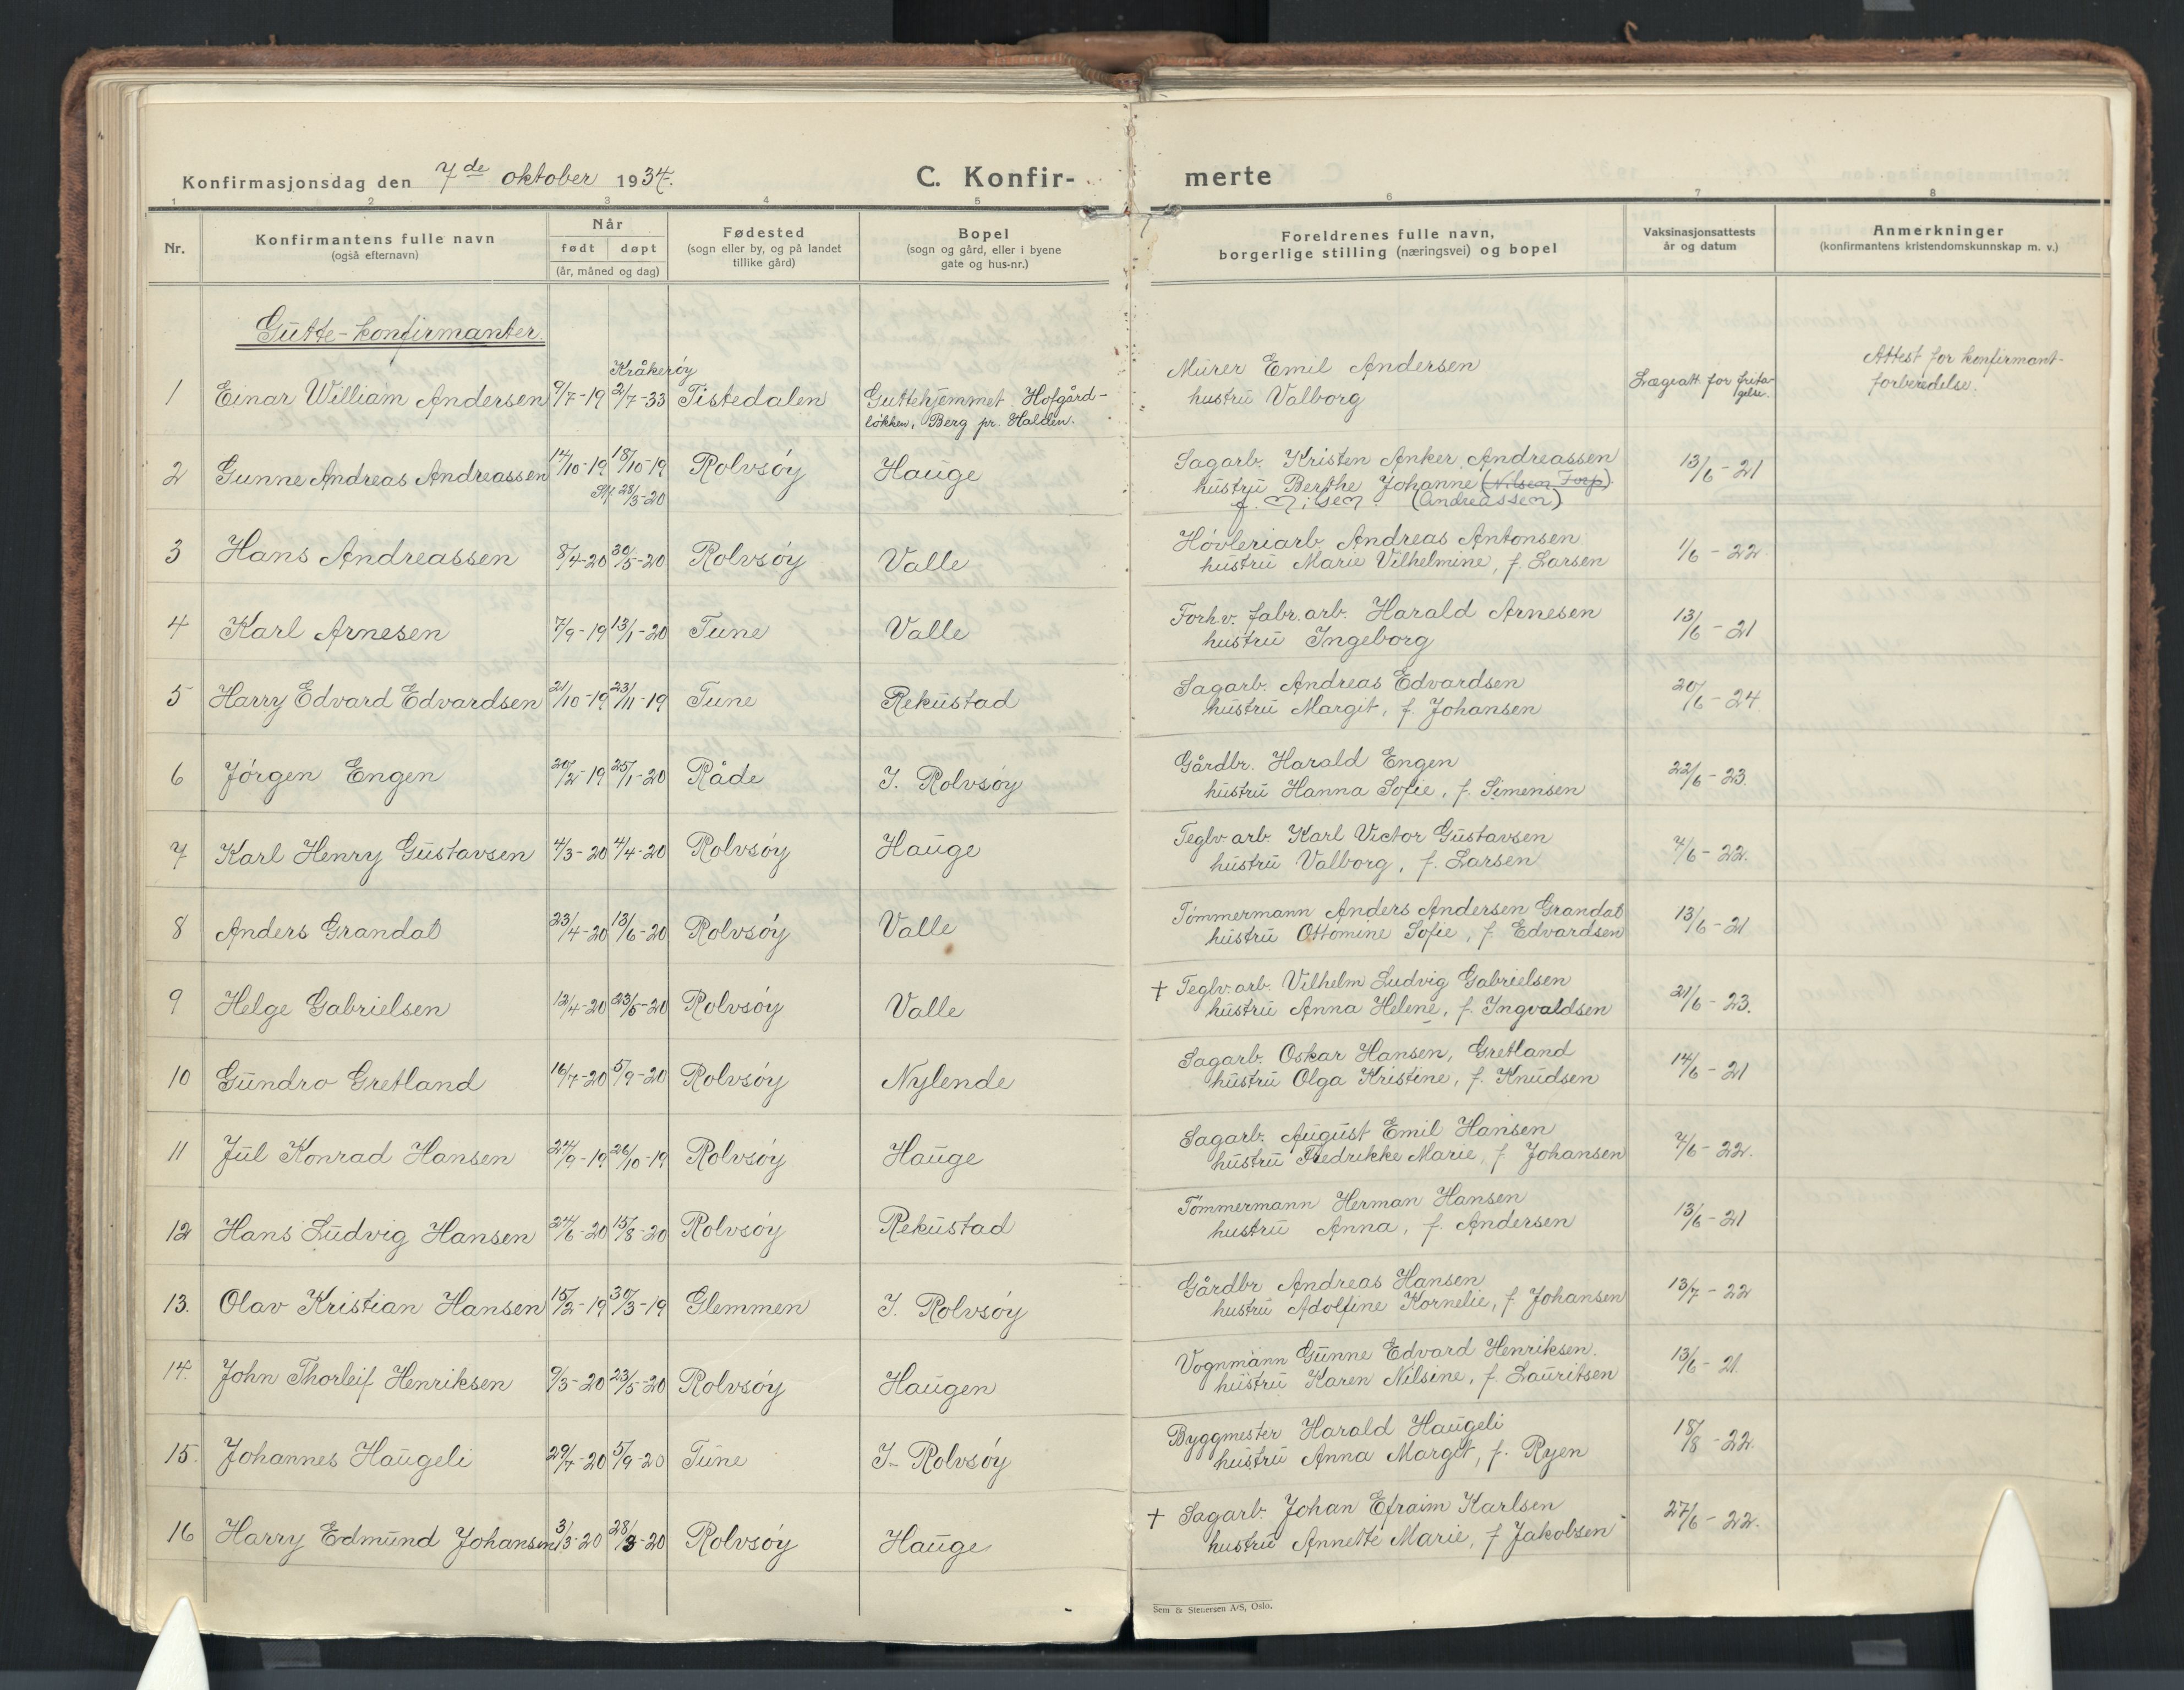 Konfirmasjonsdag den 7de oktober 1934. C. Konfir- merte
1 2 3 4 5 6 7 8
Nr. Konfirmantens fulle navn (også efternavn) Når født døpt (år, måned og dag) Fødested (sogn eller by, og på landet tillike gård) Bopel (sogn og gård, eller i byene gate og hus-nr.) Foreldrenes fulle navn, borgerlige stilling (næringsvei) og bopel Vaksinasjonsattests år og datum Anmerkninger (konfirmantens kristendomskunnskap m. v.)
Gutte-konfirmanter.
Kråkerøy
1 Einar William Andersen 9/7-19 2/7-33 Tistedalen Guttehjemmet Hofgård-
løkken, Berg pr. Halden.
Murer Emil Andersen
hustru Valborg
Lægeatt. for frita-
gelse.
Attest for konfirmant-
forberedelse.
2 Gunne Andreas Andreassen 14/10-19 18/10-19 Rolvsøy Hauge
Stf 28/3-20
Sagarb. Kristen Anker Andreassen
hustru Berthe Johanne (Nilsen Torp)
f. Nilsen (Andreassen)
13/6-21
3 Hans Andreassen 8/4-20 30/5-20 Rolvsøy Valle
Høvleriarb. Andreas Antonsen
hustru Marie Vilhelmine, f. Larsen
1/6-22
4 Karl Arnesen 7/9-19 13/1-20 Tune Valle
Forhv. fabr. arb. Harald Arnesen
hustru Ingeborg
13/6-21
5 Harry Edvard Edvardsen 21/10-19 23/11-19 Tune Rekustad
Sagarb. Andreas Edvardsen
hustru Margit, f. Johansen
20/6-24
6 Jørgen Engen 20/2-19 25/1-20 Råde I. Rolvsøy
Gårdbr. Harald Engen
hustru Hanna Sofie, f. Simensen
22/6-23.
7 Karl Henry Gustavsen 4/3-20 4/4-20 Rolvsøy Hauge
Teglv. arb. Karl Victor Gustavsen
hustru Valborg, f. Larsen
7/6-22.
8 Anders Grandal 23/4-20 13/6-20 Rolvsøy Valle
Tømmermann Anders Andersen Grandal
hustru Ottomine Sofie, f. Edvardsen
13/6-21
9 Helge Gabrielsen 12/4-20 23/5-20 Rolvsøy Valle
† Teglv. arb. Vilhelm Ludvig Gabrielsen
hustru Anna Helene, f. Ingvaldsen
21/6-23.
10 Gundro Gretland 16/7-20 5/9-20 Rolvsøy Nylende
Sagarb. Oskar Hansen, Gretland
hustru Olga Kristine, f. Knudsen
14/6-21
11 Jul Konrad Hansen 24/9-19 26/10-19 Rolvsøy Hauge
Sagarb. August Emil Hansen
hustru Fredrikke Marie, f. Johansen
7/6-22.
12 Hans Ludvig Hansen 24/6-20 15/8-20 Rolvsøy Rekustad
Tømmermann Herman Hansen
hustru Anna, f. Andersen
13/6-21
13. Olav Kristian Hansen 15/2-19 30/3-19 Glemmen I. Rolvsøy
Gårdbr. Andreas Hansen
hustru Adolfine Kornelie, f. Johansen
13/7-22
14. John Thorleif Henriksen 9/3-20 23/5-20 Rolvsøy Haugen
Vognmann Gunne Edvard Henriksen.
hustru Karen Nilsine, f. Lauritsen
13/6-21
15. Johannes Haugeli 29/7-20 5/9-20 Tune I. Rolvsøy
Byggmester Harald Haugeli
hustru Anna Margit, f. Ryen
18/8-22.
16 Harry Edmund Johansen 3/3-20 28/3-20 Rolvsøy Hauge
† Sagarb. Johan Efraim Karlsen
hustru Annette Marie, f Jakobsen
27/6-22.
Sem & Stenersen A/S, Oslo.